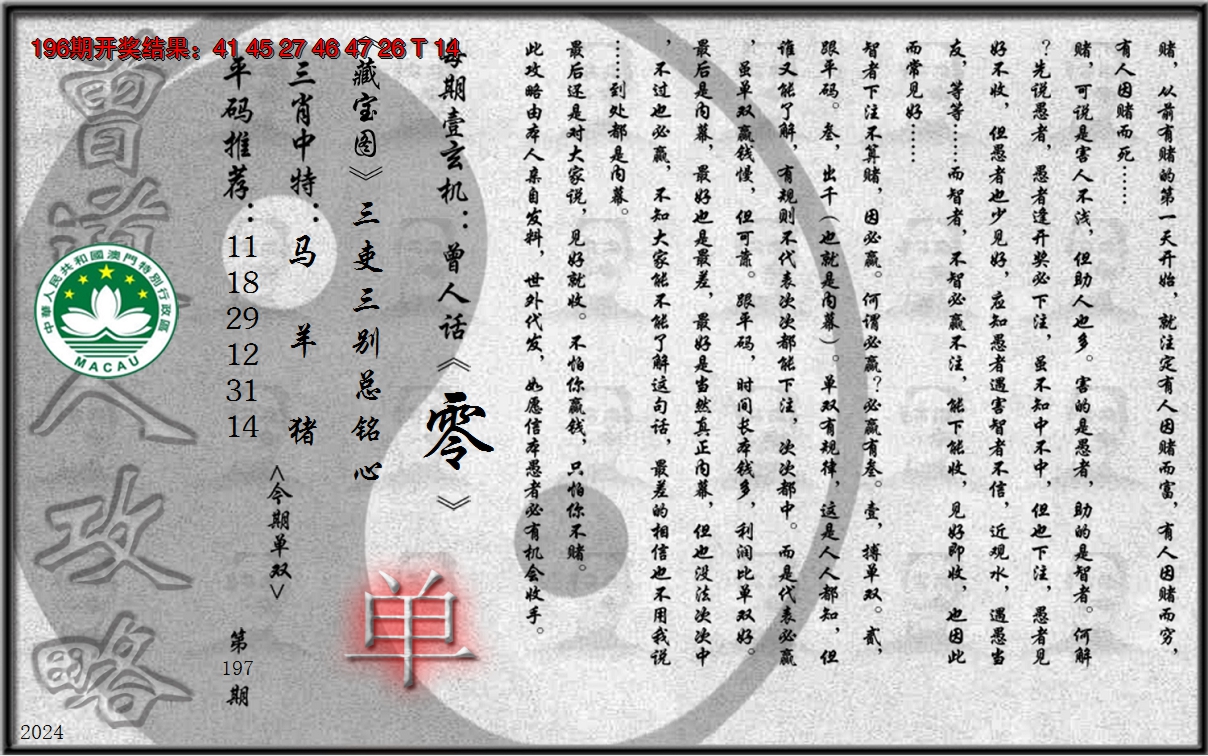 196期开奖结果：41 45 27 46 47 26 T 14
赌，从前有赌的第一天开始，就注定有人因赌而富，有人因赌而穷，
有人因赌而死……
赌，可说是害人不浅，但助人也多。害的是愚者，助的是智者。何解
？先说愚者，愚者逢开奖必下注，虽不知中不中，但也下注，愚者见
好不收，但愚者也少见好，应知愚者遇害智者不信，近观水，遇愚当
友，等等……而智者，不智必赢不注，能下能收，见好即收，也因此
而常见好……
智者下注不算赌，因必赢。何谓必赢？必赢有叁。壹，搏单双。贰，
跟平码。叁，出千（也就是内幕）。单双有规律，这是人人都知，但
谁又能了解，有规则不代表次次都能下注，次次都中。而是代表必赢
，虽单双赢钱慢，但可靠。跟平码，时间长本钱多，利润比单双好。
最后是内幕，最好也是最差，最好是当然真正内幕，但也没法次次中
，不过也必赢，不知大家能不能了解这句话，最差的相信也不用我说
……到处都是内幕。
最后还是对大家说，见好就收。不怕你赢钱，只怕你不赌。
此攻略由本人亲自发料，世外代发，如愿信本愚者必有机会收手。
每期壹玄机：曾人话《零》
《藏宝图》三吏三别总铭心
三肖中特：马 羊 猪
平码推荐：11 18 29 12 31 14
<今期单双>
单
第197期
曾道人攻略
中華人民共和國澳門特別行政區
MACAU
2024